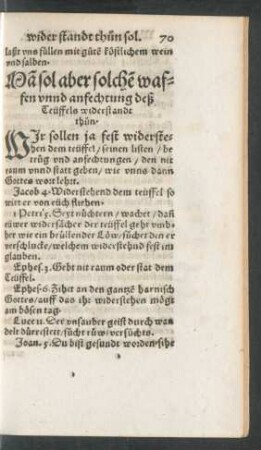 wider standt thůn sol. 70
laßt vns füllen mit gůtē köstlichem wein
vnd salben.
Mā sol aber solchē waf-
fen vnnd anfechtung deß
Teüffels widerstandt
thůn.
WIr sollen ja fest widerste-
hen dem teüffel / seinen listen / be
trüg vnd anfechtungen / den nit
raum vnnd statt geben / wie vnns dann
Gottes wort lehrt.
Jacob 4. Widerstehend dem teüffel so
wirt er von eüch fliehen.
1 Petri 5. Seyt nüchtern / wachet / dañ
eüwer widersächer der teüffel geht vmb-
her wie ein brüllender Löw / sücht den er
verschlucke / welchem widerstehnd fest im
glauben.
Ephes. 4. Gebt nit raum oder stat dem
Teüffel.
Ephes. 6. Zihet an den gantzē harnisch
Gottes / auff das ihr widerstehen mögt
am bösen tag.
Luce 11. Der vnsauber geist durch wan
delt dürre stett / sücht rüw / vnd
Joan. 5. Du bist gesundt worden / sihe